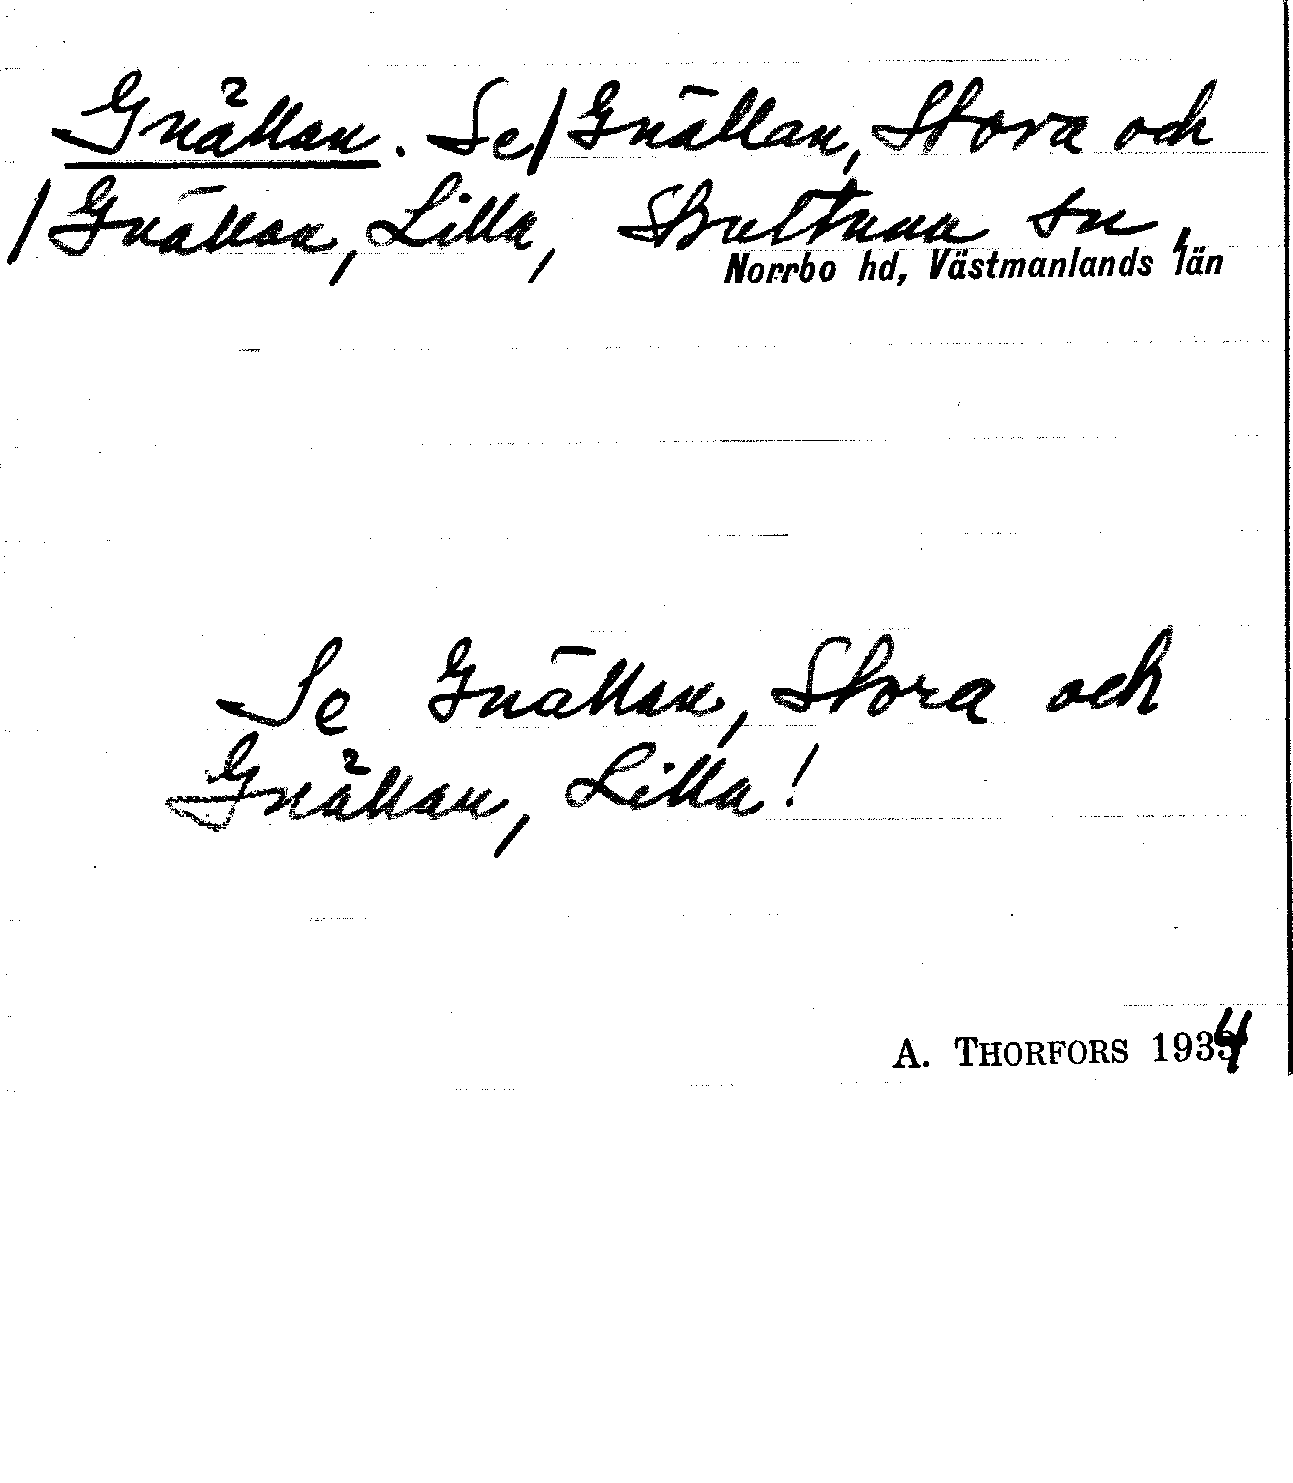 Gnällan. Se/Gnällan, Stora och
/Gnällan, Lilla, Skultuna sn,
Norrbo hd, Västmanlands län
Se Gnällan, Stora och
Gnällan, Lilla!
A. THORFORS 1934